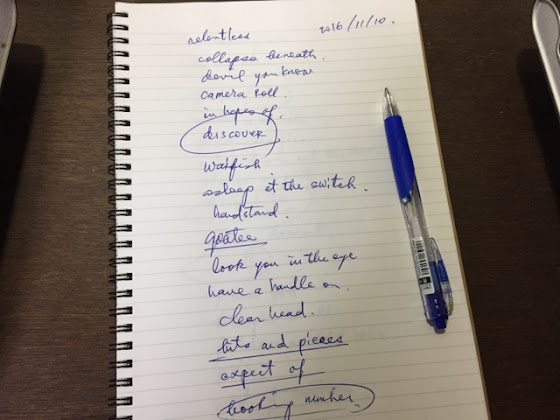 relentless 2016/11/10.
collapse beneath.
devil you know
camera roll.
in hopes of.
DISCOVER
Waifish.
asleep at the switch.
handstand.
goatee
look you in the eye
have a handle on.
clear head.
bits and pieces
expect of
booking number.